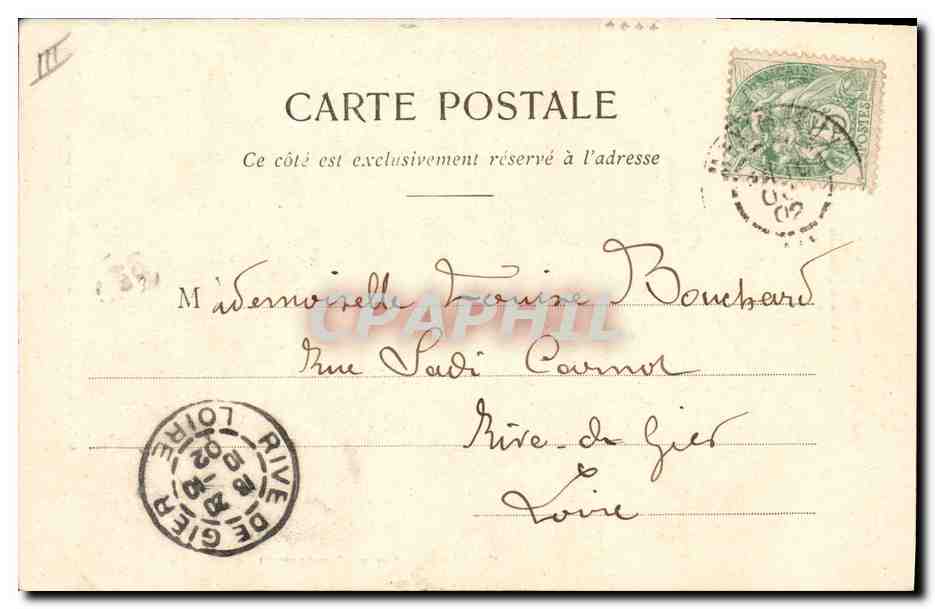 III
CARTE POSTALE
Ce côté est exclusivement réservé à l'adresse
FRANÇAISE
POSTES
02
Mademoiselle Louise Bouchard
CPAPHIL
Rue Sadi Carnot
Rive-de Gier
Loire
RIVE DE GIER
LOIRE
02